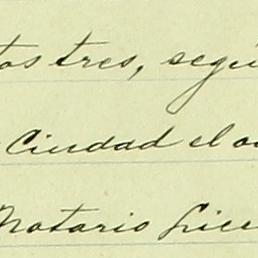 tos tres, segú
Ciudad el o
Notario Lice